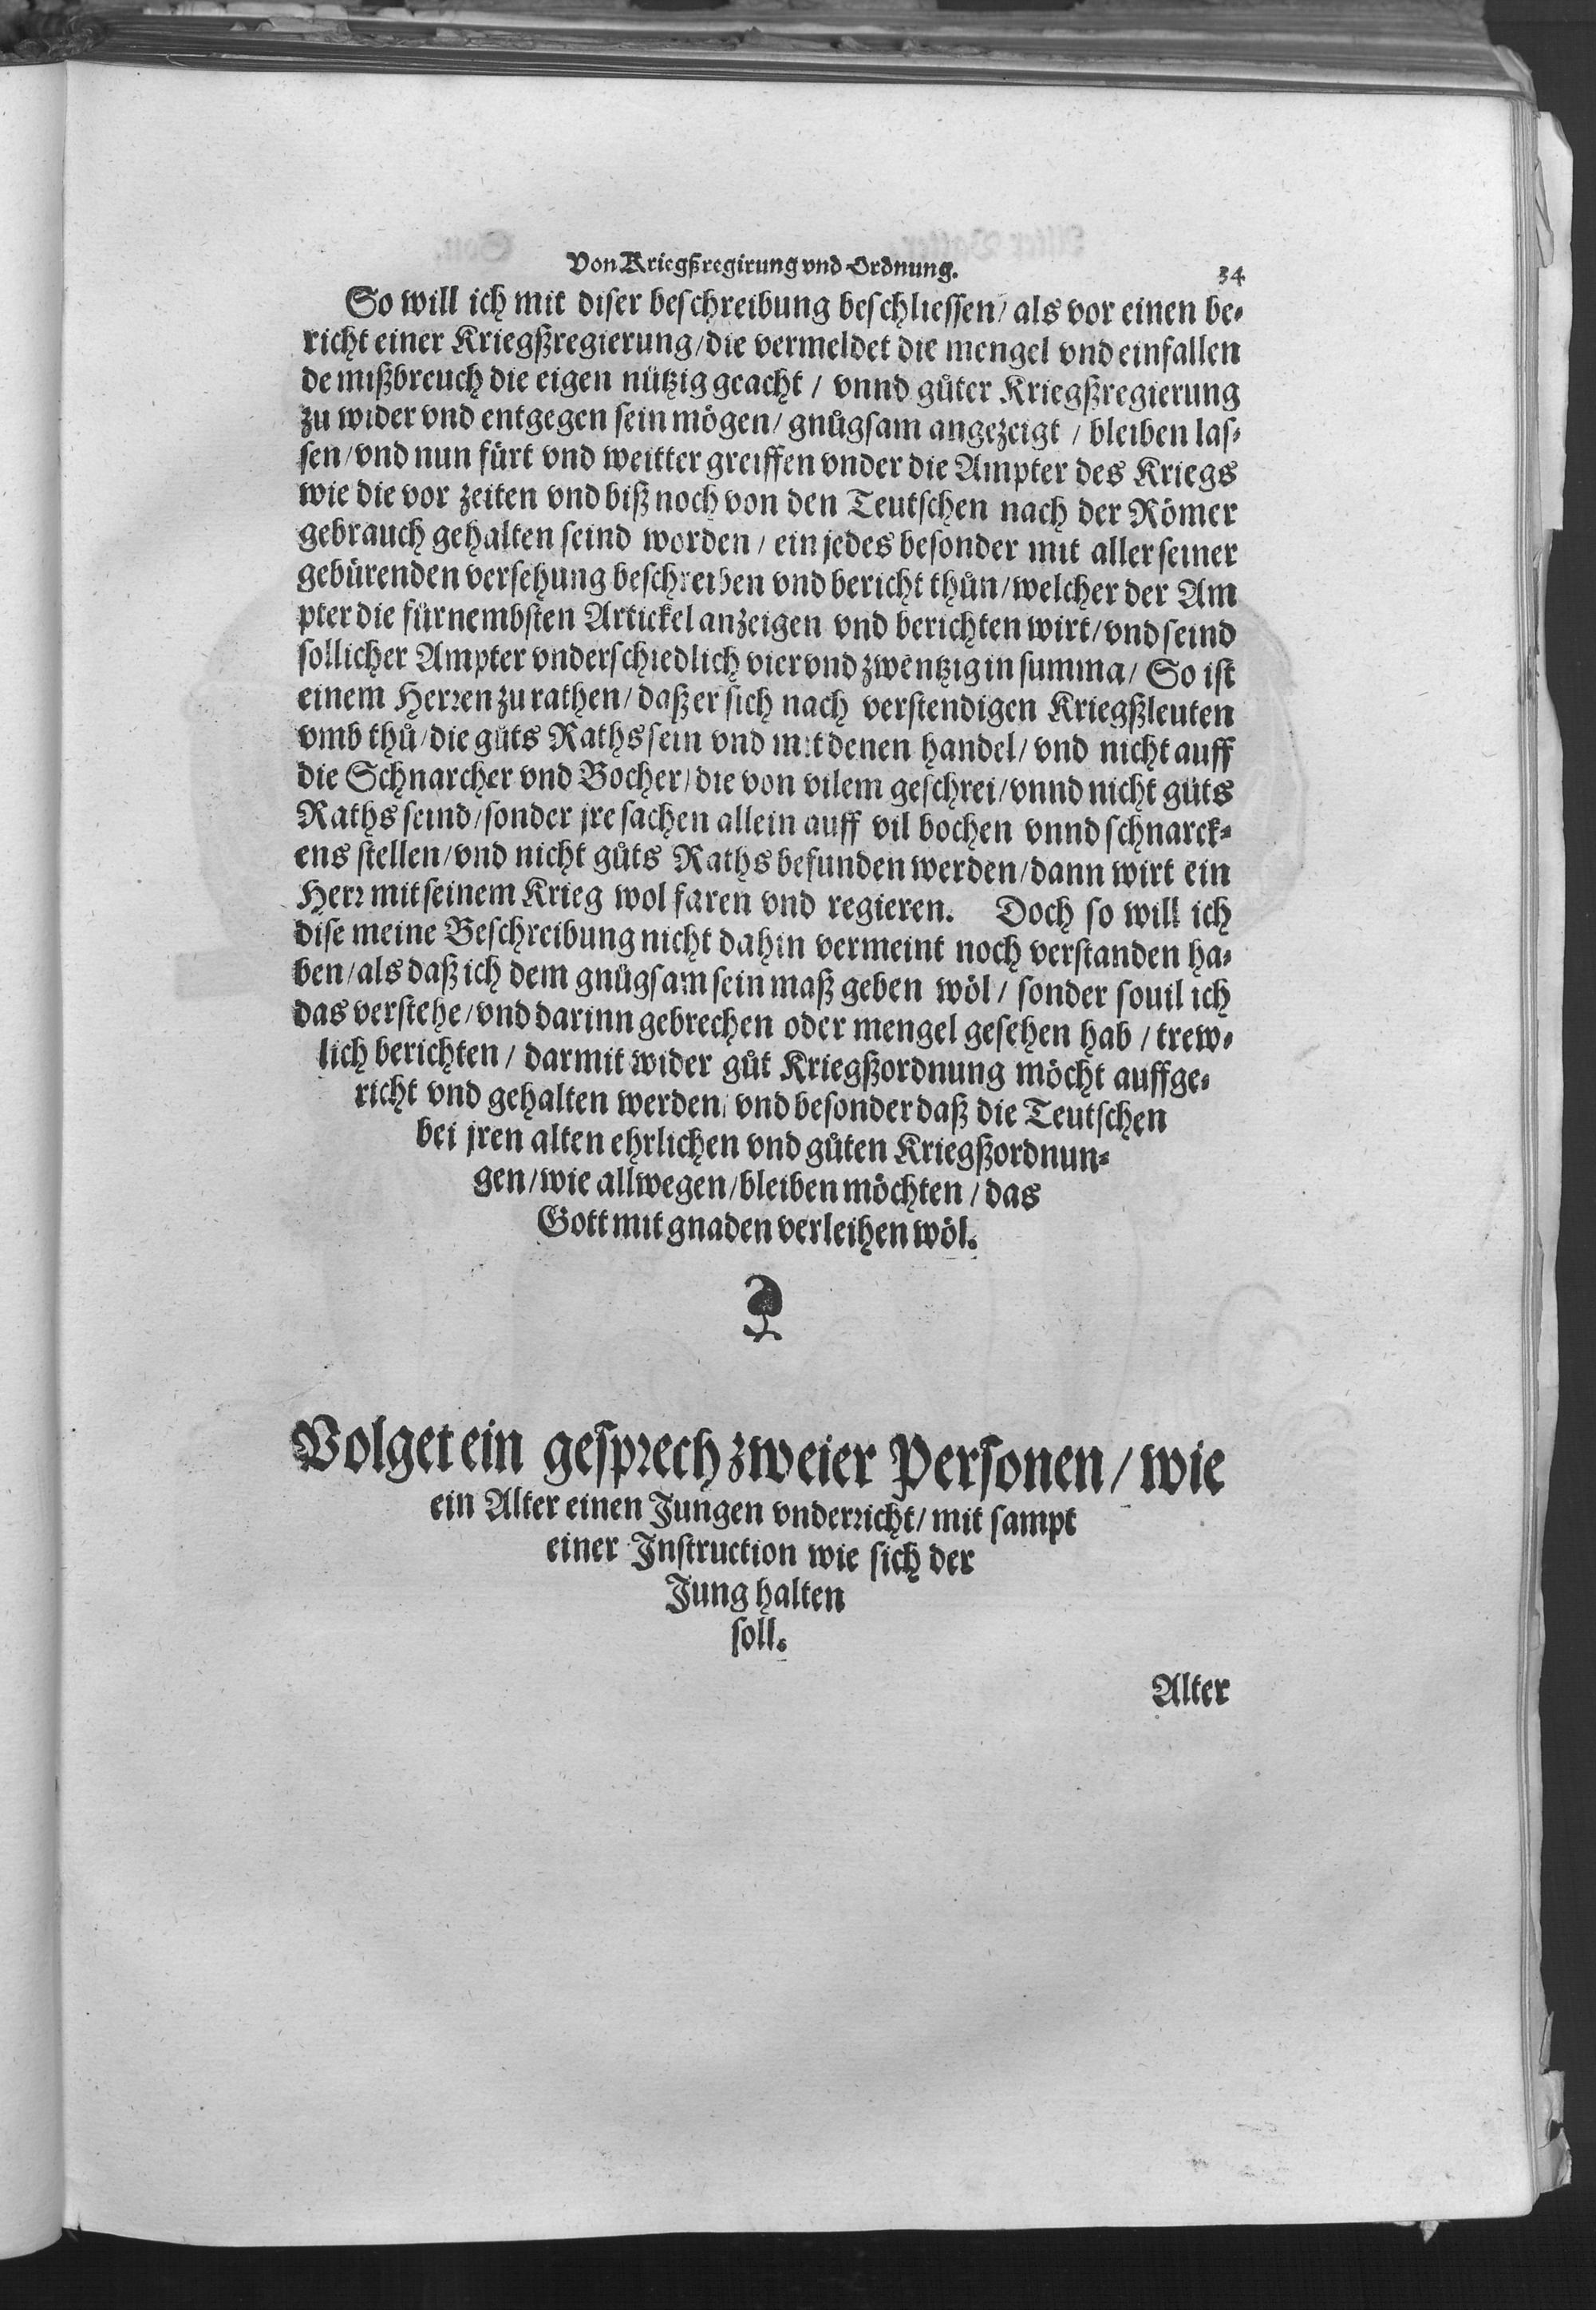 Von Kriegßregirung vnd Ordnung. 34
So will ich mit diser beschreibung beschliessen/ als vor einen be-
richt einer Kriegßregierung/ die vermeldet die mengel vnd einfallen
de mißbreuch die eigen nützig geacht / vnnd gůter Kriegßregierung
zu wider vnd entgegen sein mögen/ gnůgsam angezeigt / bleiben las-
sen/ vnd nun fürt vnd weitter greiffen vnder die Ampter des Kriegs
wie die vor zeiten vnd biß noch von den Teutschen nach der Römer
gebrauch gehalten seind worden/ ein jedes besonder mit aller seiner
gebürenden versehung beschreiben vnd bericht thůn/ welcher der Am
pter die fürnembsten Artickel anzeigen vnd berichten wirt/ vnd seind
sollicher Ampter vnderschiedlich vier vnd zwentzig in summa/ So ist
einem Herren zu rathen/ daß er sich nach verstendigen Kriegßleuten
vmb thů/ die gůts Raths sein vnd mit denen handel/ vnd nicht auff
die Schnarcher vnd Bocher/ die von vilem geschrei/ vnnd nicht gůts
Raths seind/ sonder jre sachen allein auff vil bochen vnnd schnarck-
ens stellen/ vnd nicht gůts Raths befunden werden/ dann wirt ein
Herr mit seinem Krieg wol faren vnd regieren. Doch so will ich
dise meine Beschreibung nicht dahin vermeint noch verstanden ha-
ben/ als daß ich dem gnůgsam sein maß geben wöl/ sonder souil ich
das verstehe/ vnd darinn gebrechen oder mengel gesehen hab / trew-
lich berichten / darmit wider gůt Kriegßordnung möcht auffge-
richt vnd gehalten werden/ vnd besonder daß die Teutschen
bei jren alten ehrlichen vnd gůten Kriegßordnun-
gen/ wie allwegen/ bleiben möchten / das
Gott mit gnaden verleihen wöl.
Volget ein gesprech zweier Personen/ wie
ein Alter einen Jungen vnderricht/ mit sampt
einer Instruction wie sich der
Jung halten
soll.
Alter